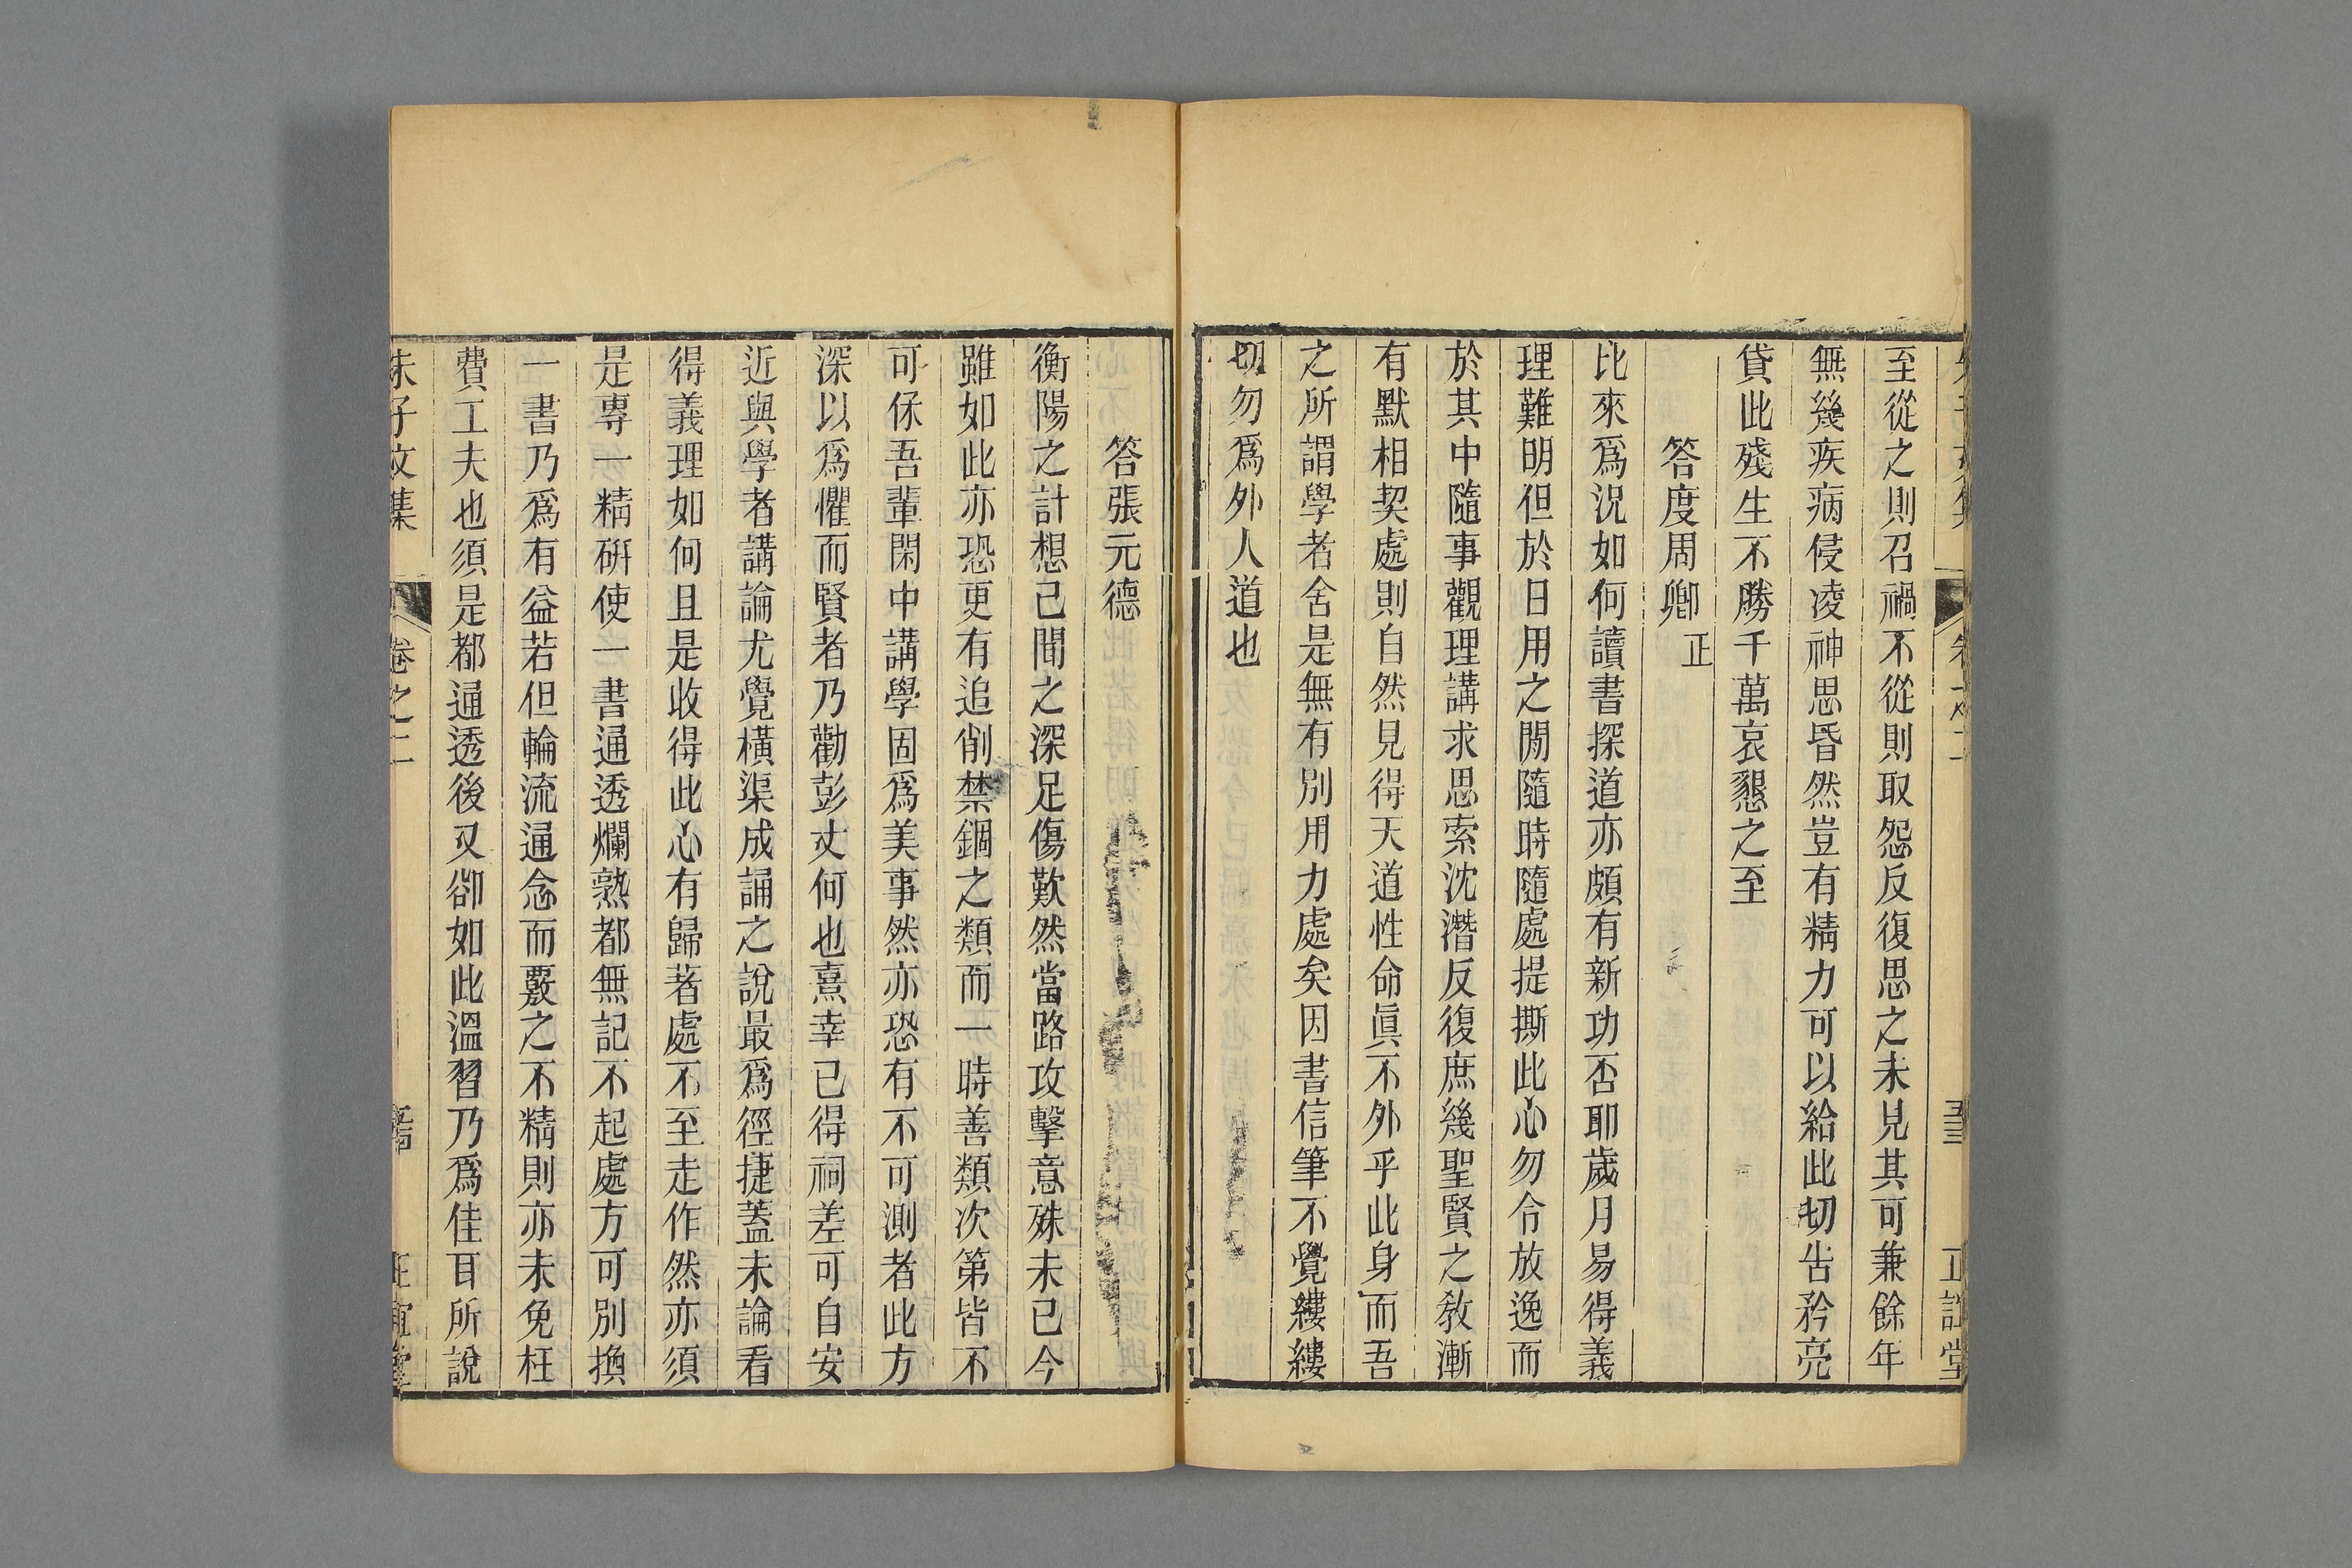 至從之則召禍不從則取怨反復思之未見其可兼餘年
無幾疾病侵凌神思昏然豈有精力可以給此切告矜亮
貸此殘生不勝千萬哀懇之至
答度周卿正
比來爲況如何讀書探道亦頗有新功否耶歲月易得義
理難明但於日用之閒隨時隨處提撕此心勿令放逸而
於其中隨事觀理講求思索沈潛反復庶幾聖賢之敎漸
有默相契處則自然見得天道性命眞不外乎此身而吾
之所謂學者舍是無有別用力處矣因書信筆不覺縷縷
切勿爲外人道也
答張元德
衡陽之計想已聞之深足傷歎然當路攻擊意殊未已今
雖如此亦恐更有追削禁錮之類而一時善類次第皆不
可保吾輩閑中講學固爲美事然亦恐有不可測者此方
深以爲懼而賢者乃勸彭丈何也熹幸已得祠差可自安
近與學者講論尤覺橫渠成誦之說最爲徑捷蓋未論看
得義理如何且是收得此心有歸著處不至走作然亦須
是專一精硏使一書通透爛熟都無記不起處方可別換
一書乃爲有益若但輪流通念而覈之不精則亦未免枉
費工夫也須是都通透後又卻如此溫習乃爲佳耳所說
朱子文集
卷之二
正誼堂